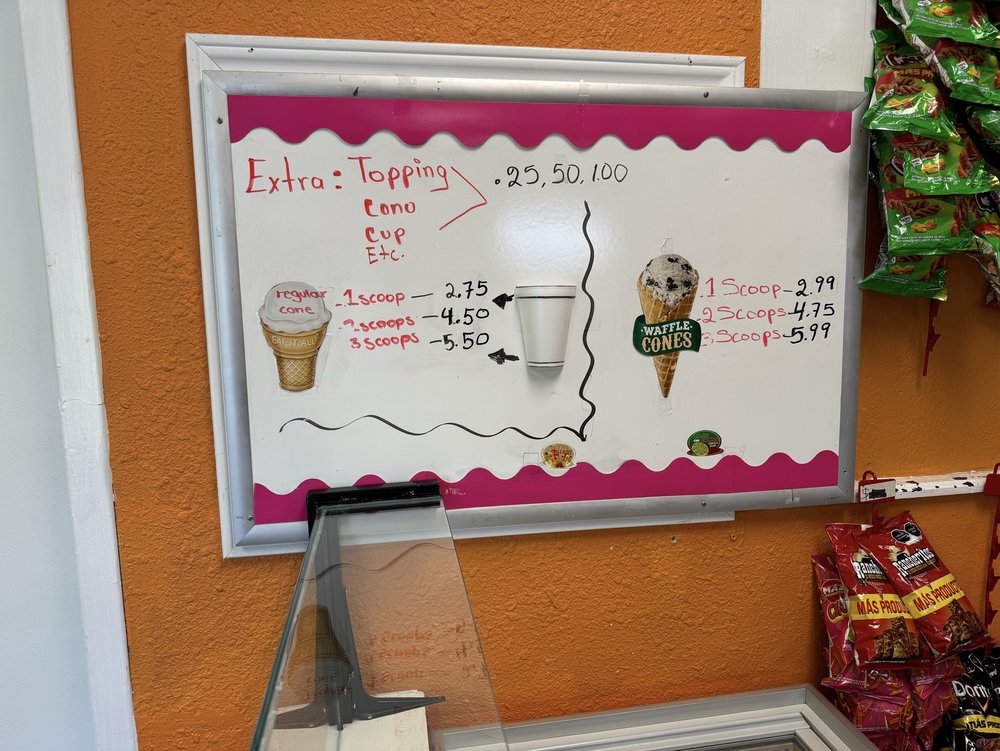 Extra: Topping .25, 50, 1.00
Cono
Cup
Etc.
regular
cone
EAT IT ALL
1 scoop — 2.75
2 scoops — 4.50
3 scoops — 5.50
WAFFLE
CONES
.1 Scoop - 2.99
.2 Scoops - 4.75
3 Scoops - 5.99
MÁS PRODUC
MÁS PRODUC
Dorit
MÁS PROD